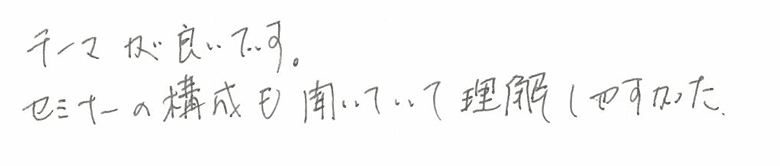 テーマが良いです。
セミナーの構成も聞いていて理解しやすかった.